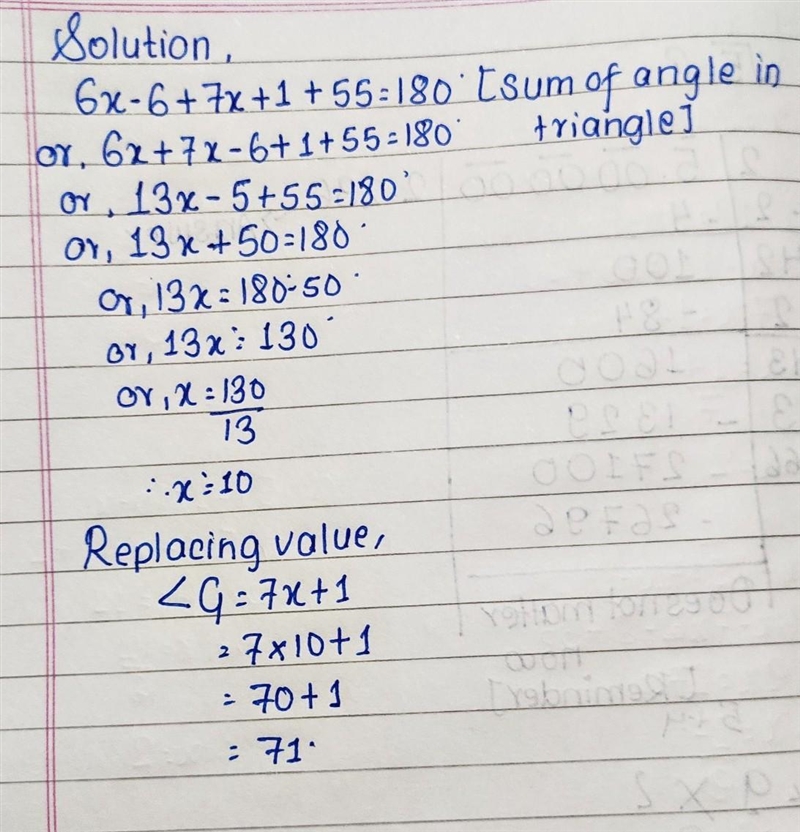 Solution,
6x-6+7x+1+55=180° [sum of angle in
triangle]
or, 6x+7x-6+1+55=180°
or, 13x-5+55=180°
or, 13x+50=180°
or, 13x=180-50°
or, 13x=130°
or, x=130
13
∴x=10
Replacing value,
∠G=7x+1
=7×10+1
=70+1
=71°